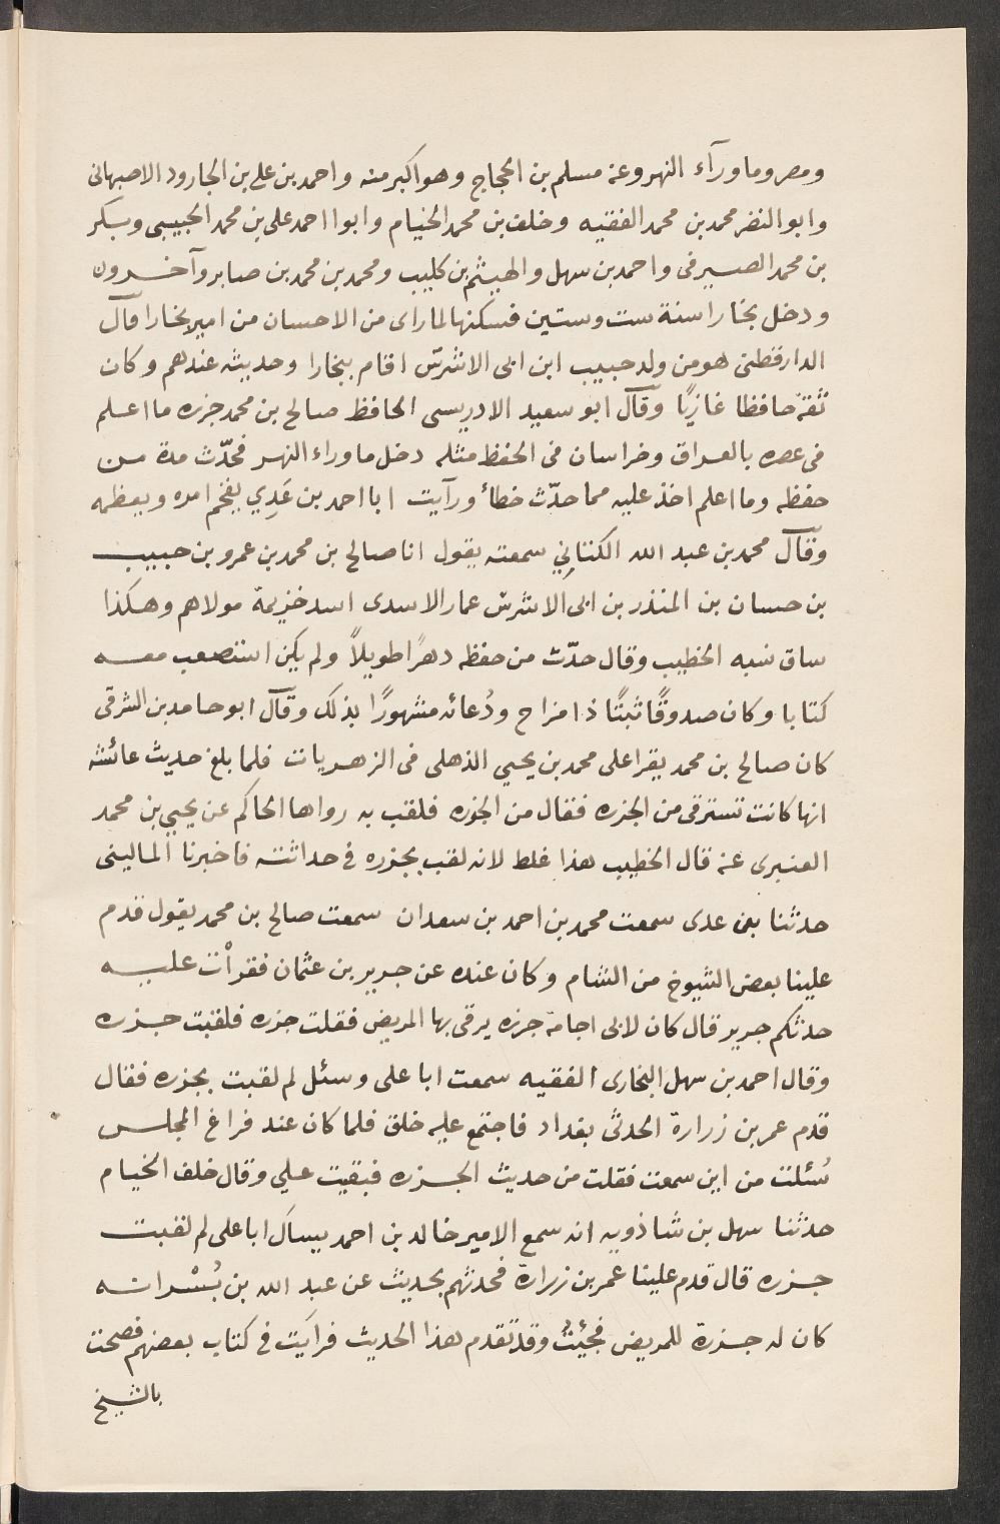 ومصر وما ورآء النهر وعنه مسلم بن الحجاج وهو اكبر منه واحمد بن علي بن الجارود الاصبهانى
وابو النضر محمد بن محمد الفقيه وخلف بن محمد الخيام وابوا احمد على بن محمد الحبيبى وبكر
بن محمد الصيرفى واحمد بن سهل والهيثم بن كليب ومحمد بن محمد بن صابر وآخرون
ودخل بخارا سنة ست وستين فسكنها لما راى من الاحسان من امير بخارا قال
الدارقطنى هو من ولد حبيب ابن ابى الاشرس اقام ببخارا وحديثه عندهم وكان
ثقة حافظا غازيًا وقال ابو سعيد الادريسى الحافظ صالح بن محمد جزره ما اعلم
فى عصره بالعراق وخراسان فى الحفظ مثله دخل ما وراء النهر فحدّث مدة من
حفظه وما اعلم اخذ عليه مما حدّث خطأ ورآيت ابا احمد بن عَدِي يفخم امره ويعظمه
وقال محمد بن عبد الله الكتانِي سمعته يقول انا صالح بن محمد بن عمرو بن حبيب
بن حسان بن المنذر بن ابى الاشرس عمار الاسدى اسد خزيمة مولاهم وهكذا
ساق نسبه الخطيب وقال حدّث من حفظه دهرًا طويلاً ولم يكن استصعب معه
كتابا وكان صدوقًا ثبتًا ذا مزاح ودُعائه مشهورًا بذلك وقال ابو حامد بن الشرقى
كان صالح بن محمد يقرا على محمد بن يحيي الذهلى فى الزهريات فلما بلغ حديث عائشه
انها كانت تسترقى من الجزره فقال من الجزره فلقب به رواها الحاكم عن يحيي بن محمد
العنبرى عنه قال الخطيب هذا غلط لانه لقب بجزره فى حداثته فاخبرنا المالينى
حدثنا بن عدى سمعت محمد بن احمد بن سعدان سمعت صالح بن محمد يقول قدم
علينا بعض الشيوخ من الشام وكان عنده عن جرير بن عثمان فقرأت عليه
حدثكم جرير قال كان لابى اجامة جرزه يرقى بها المريض فقلت جزره فلقبت جزره
وقال احمد بن سهل البخارى الفقيه سمعت ابا على وسئل لم لقبت بجزره فقال
قدم عمر بن زرارة الحدثى بغداد فاجتمع عليه خلق فلما كان عند فراغ المجلس
سُئلت من اين سمعت فقلت من حديث الجزره فبقيت علي وقال خلف الخيام
حدثنا سهل بن شاذويه انه سمع الامير خالد بن احمد يسال ابا على لم لقبت
جزره قال قدم علينا عمر بن زرارة فحدثهم بحديث عن عبد الله بن بُسْر انه
كان له جزرة للمريض فجئتُ وقد تقدم هذا الحديث فرايت فى كتاب بعضهم فصحت
بالشيخ